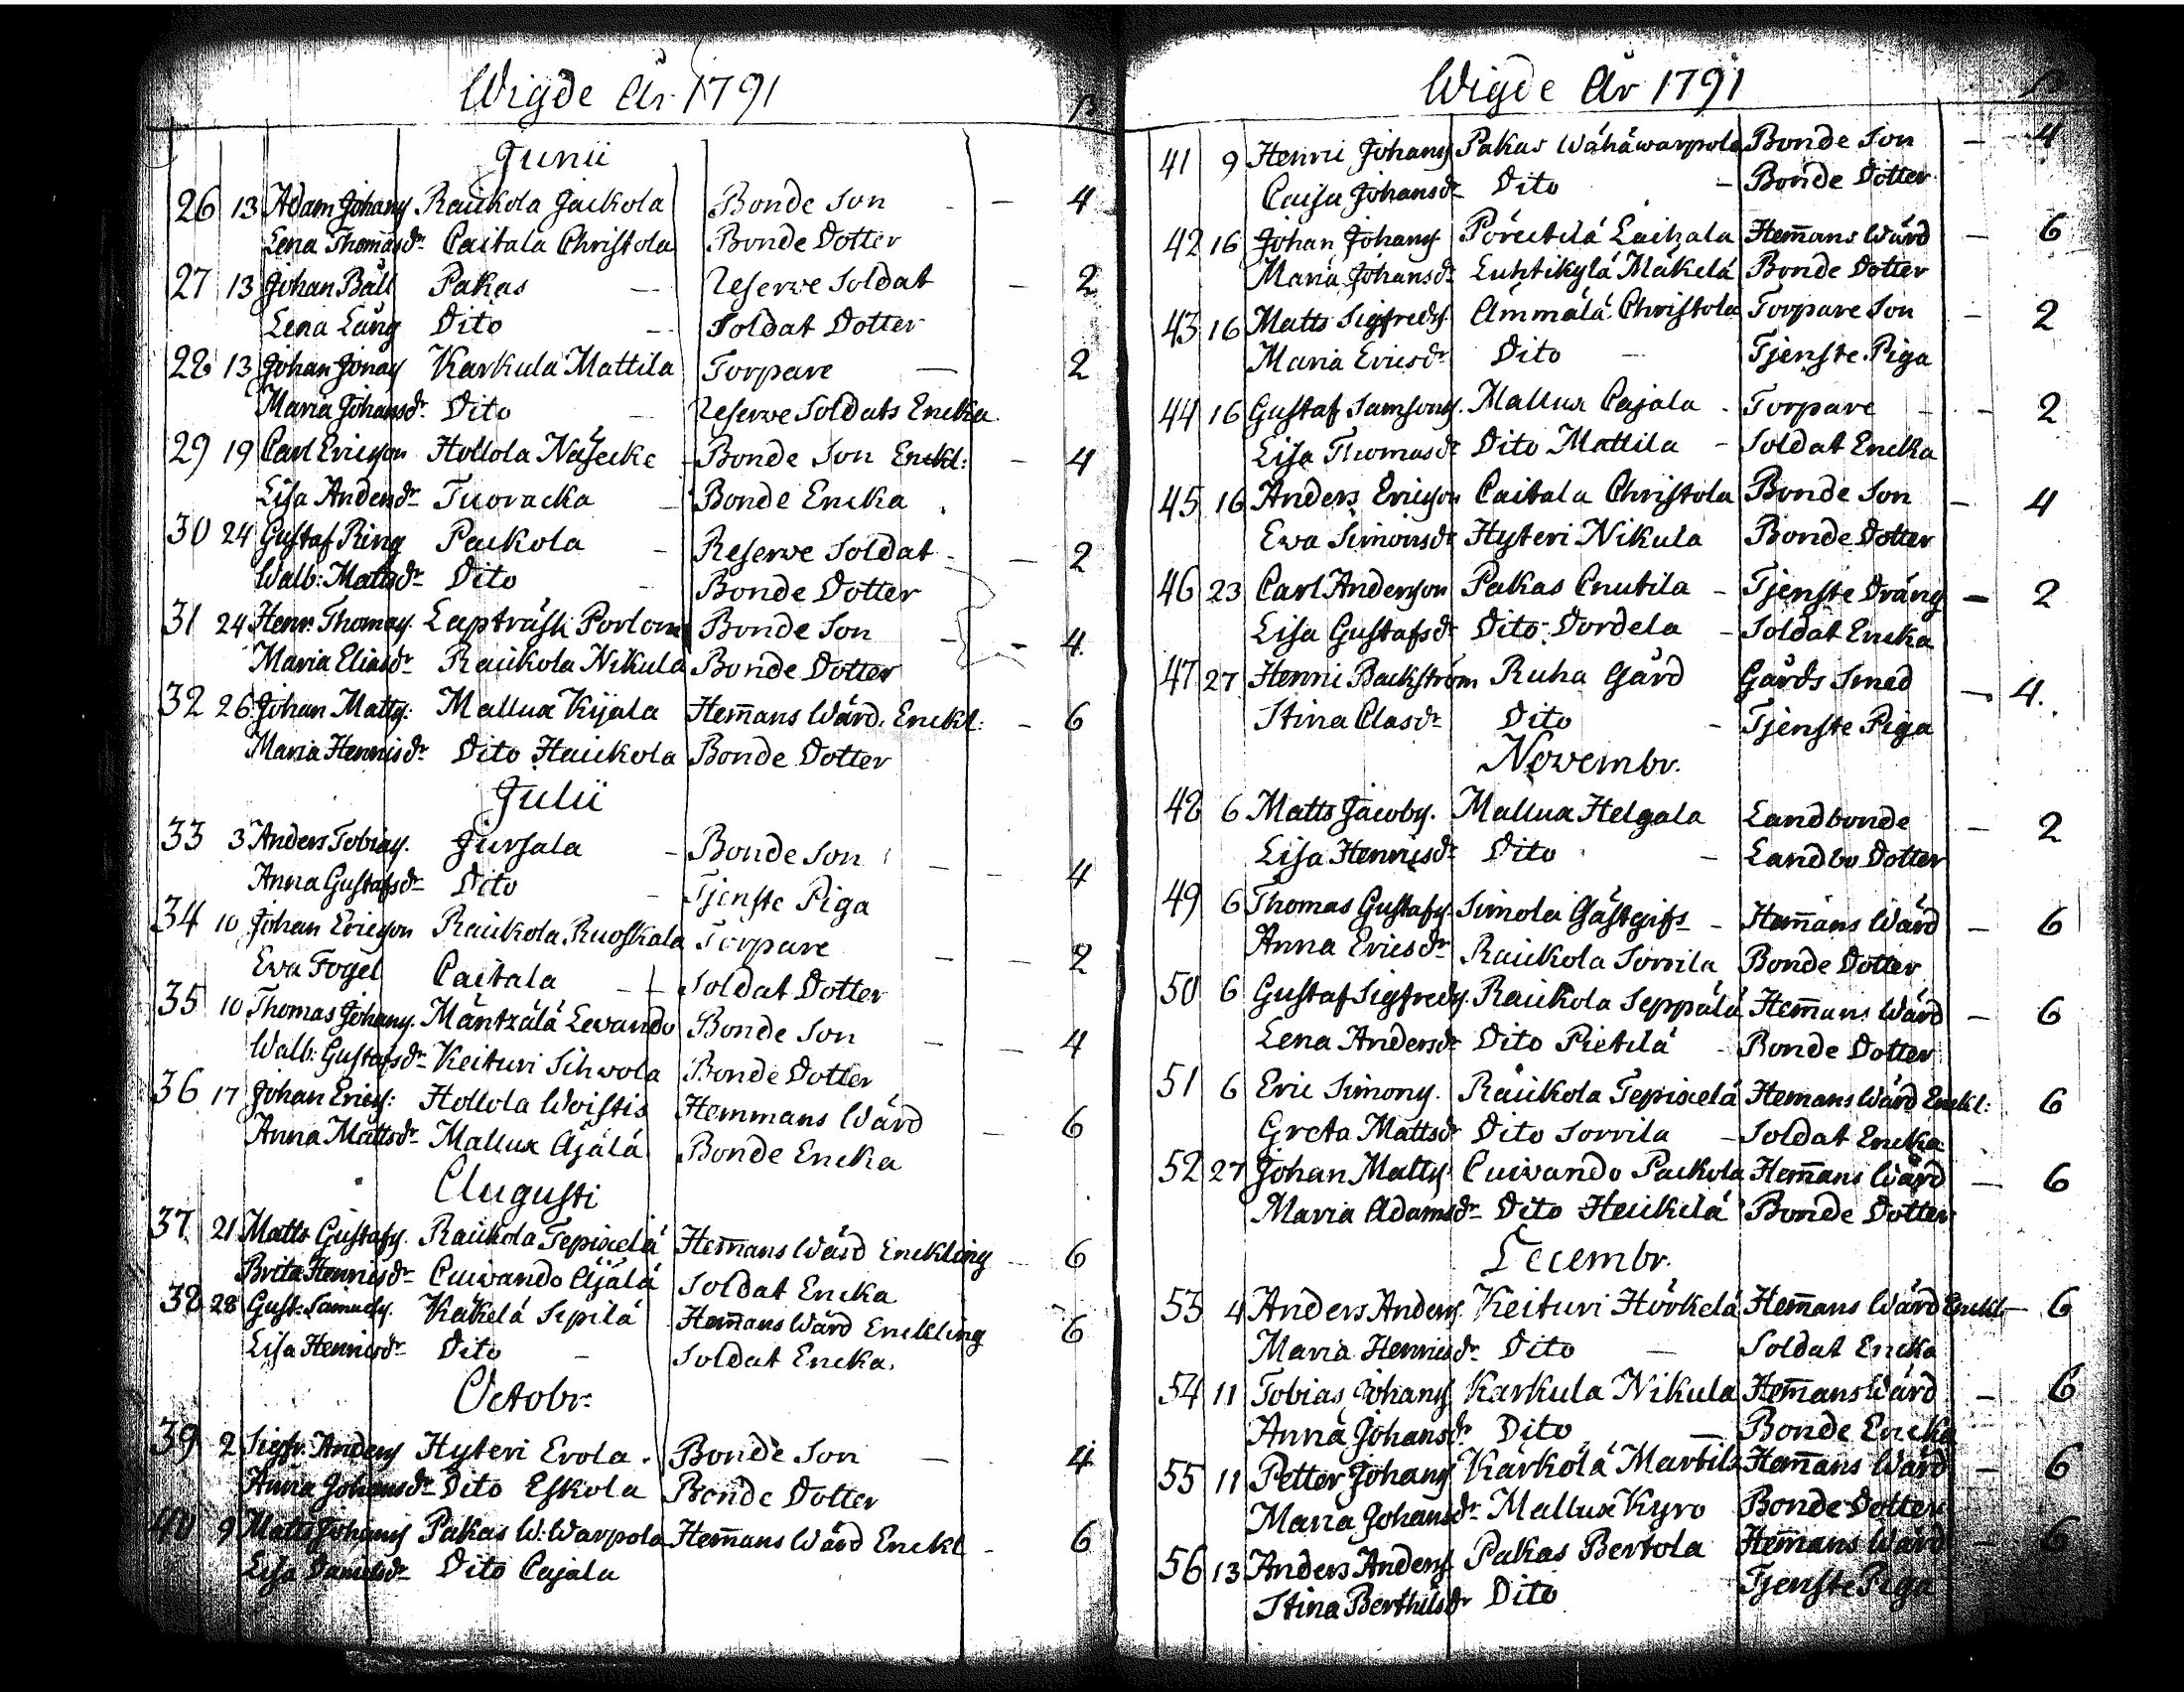 Wigde År 1791
Junii
26 13 Adam Johans Raukola Jackola Bonde Son - 4
Lena Thomasdr Caitala Christola Bonde Dotter
27 13 Johan Båll Pakas - Reserve Soldat - 2
Lena Lång Dito - Soldat Dotter
28 13 Johan Jonas Karkula Mattila Torpare - 2
Maria Johansdr Dito - Reserve Soldats Encka
29 19 Carl Ericson Hollola Nåsecke - Bonde Son Enckl: - 4
Lisa Andersdr Tuoracka - Bonde Encka
30 24 Gustaf Ring Packola - Reserve Soldat - 2
Walb: Mattsdr Dito - Bonde Dotter
31 24 Henr. Thomas. Lapträsk Porlom Bonde Son - 4.
Maria Eliasdr Raukola Nikula Bonde Dotter
32 26 Johan Matts: Mallux Kijala Hem̄ans Wård. Enckl: - 6
Maria Henricsdr Dito Hauckola Bonde Dotter
Julii
33 3 Anders Tobias. Jursala - Bonde Son - 4
Anna Gustafsdr Dito - Tjenste Piga
34 10 Johan Ericson Raukola Ruoskala Torpare - 2
Eva Fogel Caitala - Soldat Dotter
35 10 Thomas Johans. Mäntzälä Levando Bonde Son - 4
Walb: Gustafsdr Keituri Sihvola Bonde Dotter
36 17 Johan Erics: Hollola Woistis Hemmans Wård - 6
Anna Mattsdr Mallux Äjälä Bonde Encka
Augusti
37. 21 Matts Gustafs. Raukola Tepixelä Hem̄ans Wård Enckling - 6
Brita Henricsdr Cuivando Äjälä Soldat Encka
38 28 Gust: Samuels. Käkelä Sepilä Hem̄ans Wård Enckling 6
Lisa Henricsdr Dito - Soldat Encka.
Octobr:
39 2 Sigfr. Anders Hyteri Erola. Bonde Son - 4
Anna Johansdr Dito Eskola Bonde Dotter
40 9 Matts Johans Pakas W: Warpola Hem̄ans Wård Enckl - 6
Lisa Danielsdr Dito Cajala
Wigde År 1791
41 9 Henric Johans Pakas Wähäwarpola Bonde Son - 4
Caisa Johansdr Dito - Bonde Dotter
42 16 Johan Johans Pöreitilä Laihala Hem̄ans Wård - 6
Maria Johansdr Luhtikylä Mäkelä Bonde Dotter
43 16 Matts Sigfreds. Ämmälä Christola Torpare Son - 2
Maria Ericsdr Dito - Tjenste Piga
44 16 Gustaf Samsons. Mallux Cajala. Torpare - 2
Lisa Thomasdr Dito Mattila - Soldat Encka
45 16 Anders Ericson Caitala Christola Bonde Son - 4
Ewa Simonsdr Hyteri Nikula Bonde Dotter
46 23 Carl Anderson Pakas Cnutila - Tjenste Dräng - 2
Lisa Gustafsdr Dito Dordela - Soldat Encka
47 27 Henric Backström Ruha Gård Gårds Smed - 4.
Stina Clasdr Dito - Tjenste Piga
Novembr.
48 6 Matts Jacobs. Mallux Helgala Landbonde - 2
Lisa Henricsdr Dito - Landbo Dotter
49 6 Thomas Gustafs. Simola Gästgifs - Hem̄ans Wård - 6
Anna Ericsdr Raukola Sorvila Bonde Dotter
50 6 Gustaf Sigfreds. Raukola Seppälä Hem̄ans Wård - 6
Lena Andersdr Dito Pietilä - Bonde Dotter
51 6 Eric Simons. Raukola Tepixelä Hemans Wård Enckl: 6
Greta Mattsdr Dito Sorvila - Soldat Encka
52 27 Johan Matts Cuivando Packola Hem̄ans Wård - 6
Maria Adamsdr Dito Heickilä Bonde Dotter
Decembr.
53 4 Anders Anders. Keituri Hörkelä Hem̄ans Wård Enckl - 6
Maria Henricsdr Dito - Soldat Encka
54 11 Tobias Johans Karkula Nikula Hem̄ans Wård - 6
Anna Johansdr Dito - Bonde Encka
55 11 Petter Johans Kärkölä Martila Hem̄ans Wård - 6
Maria Johansdr Mallux Kyro Bonde Dotter
56 13 Anders Anders. Pakas Bertola Hem̄ans Wård - 6
Stina Berthilsdr Dito Tjenste Piga